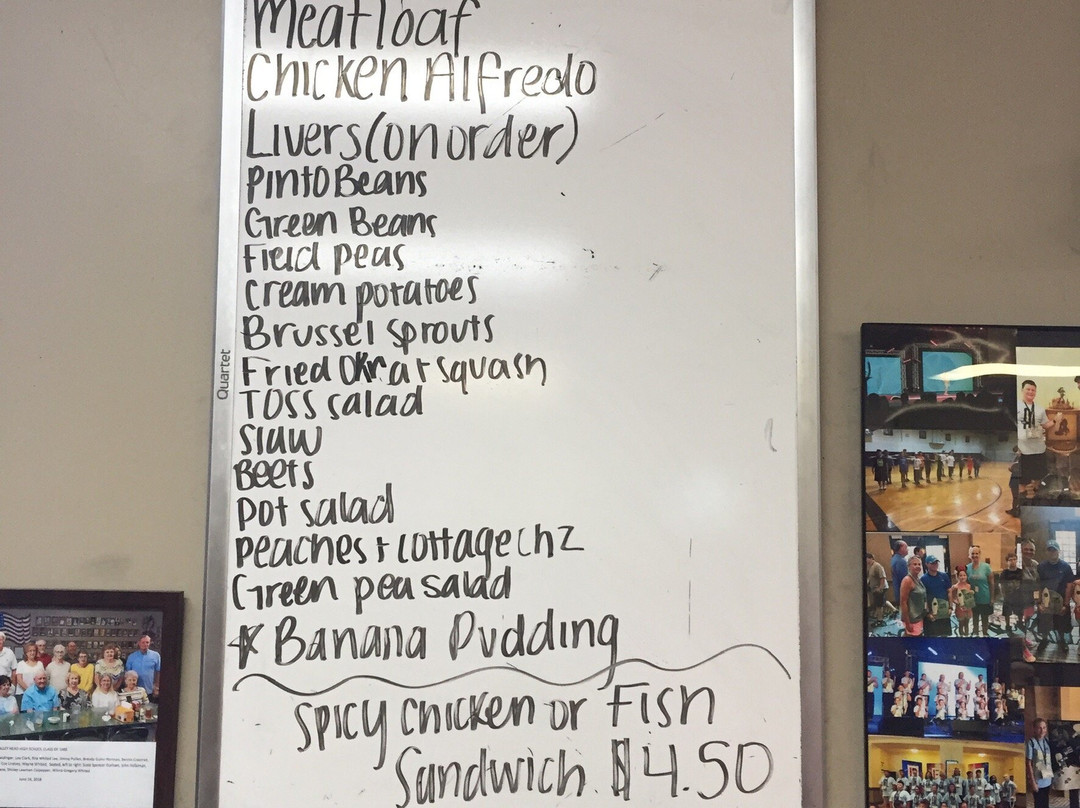 Meatloaf
Chicken Alfredo
Livers (on order)
Pinto Beans
Green Beans
Field peas
Cream potatoes
Brussel sprouts
Fried Okra + squash
Toss salad
Slaw
Beets
Pot salad
Peaches + Cottage Chz
Green pea salad
* Banana Pudding
Spicy Chicken or Fish
Sandwich. $4.50
Quartet